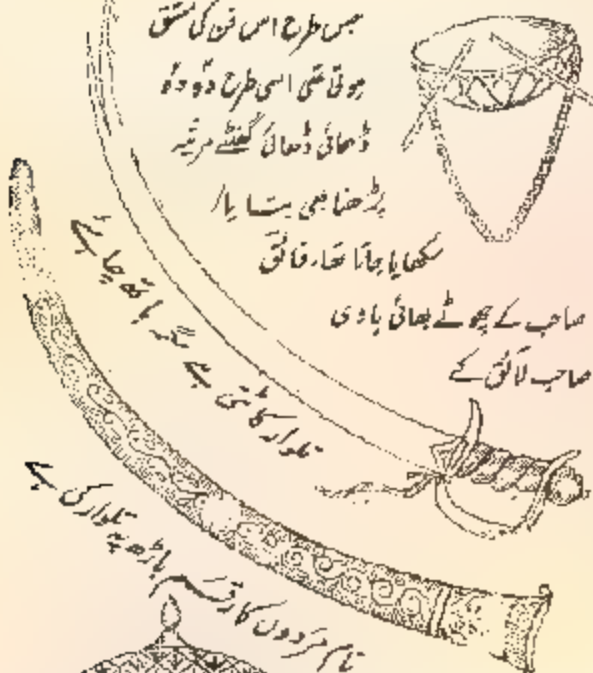 جس طرح اس فن کی مشق
ہوتی تھی اسی طرح دو دو
ڈھائی ڈھائی گھنٹے مرثیہ
پڑھنا بھی بتایا/
سکھایا جاتا تھا۔ فائق
صاحب کے چھوٹے بھائی ہادی
صاحب لائق کے
تلوار کاٹتی ہے مگر ہاتھ چاہئے
نام مردوں کا رقم باڑھ پہ تلوار کی ہے